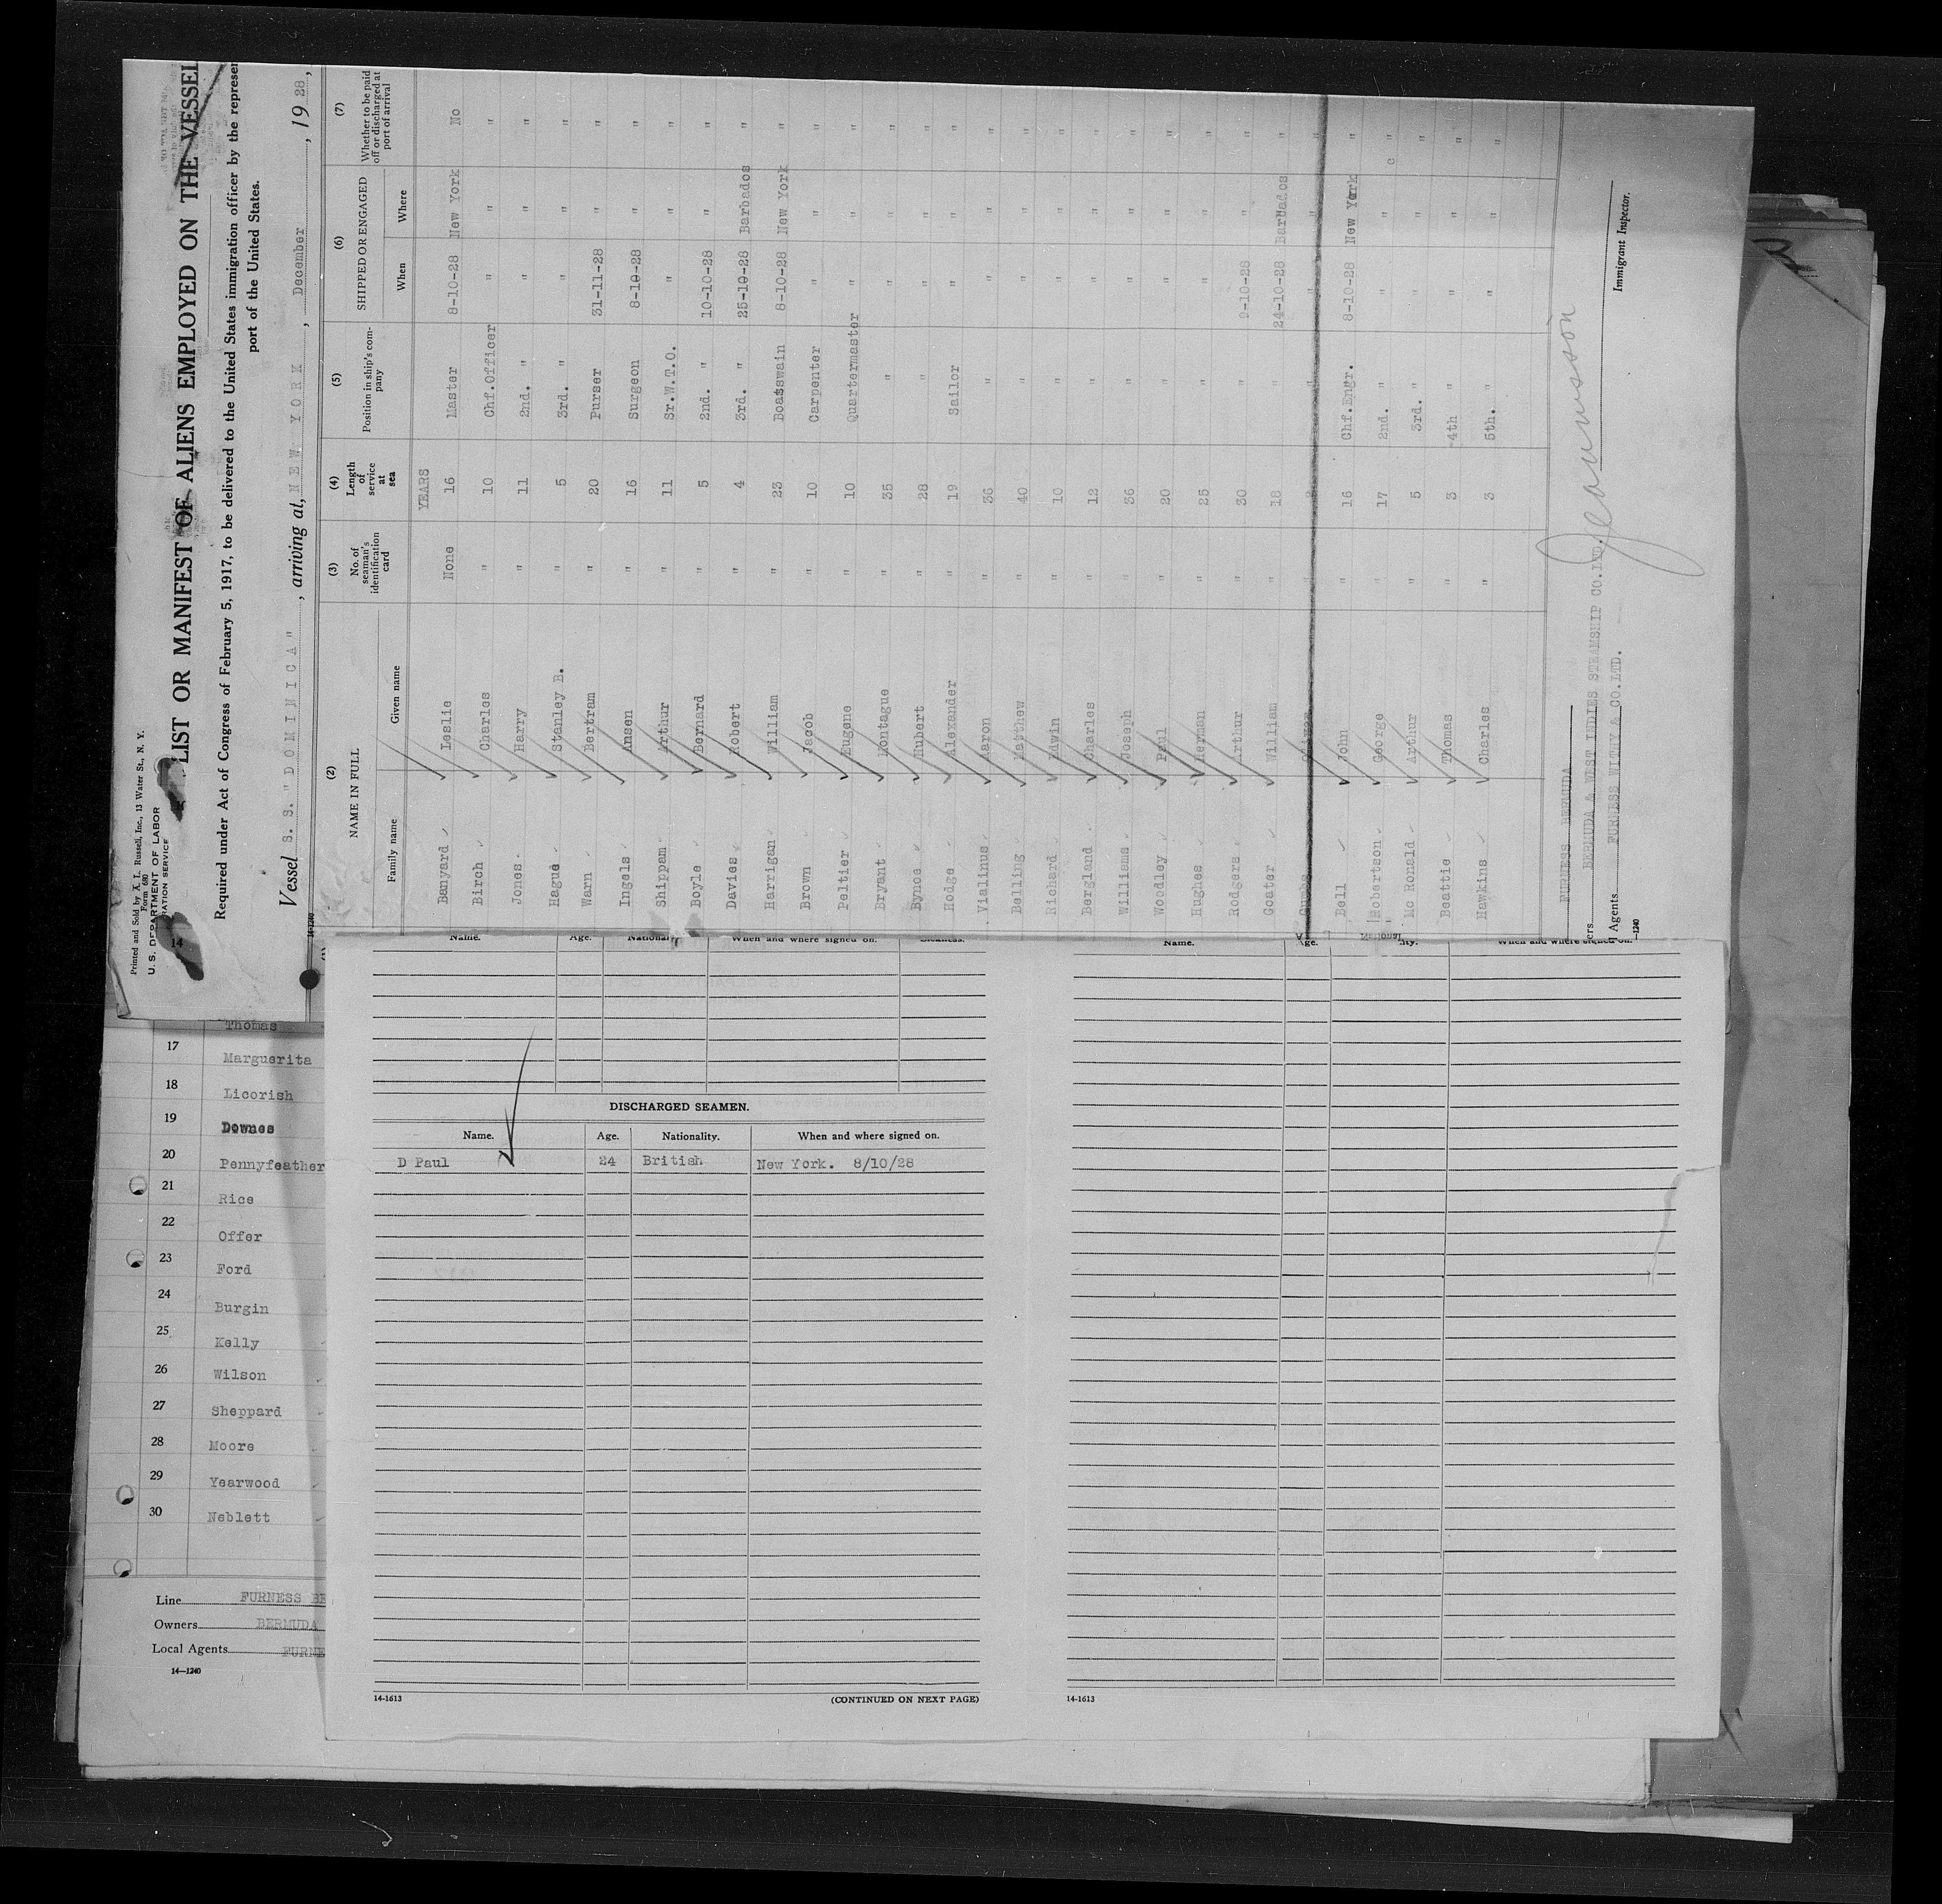 Printed and Sold by A. L. Russell, Inc., 13 Water St., N. Y.
Form 680
U. S. DEPARTMENT OF LABOR
14
LIST OR MANIFEST OF ALIENS EMPLOYED ON THE VESSEL
Required under Act of Congress of February 5, 1917, to be delivered to the United States immigration officer by the represen
port of the United States.
Vessel S. S. "DOMINICA", arriving at, NEW YORK, December, 19 28,
(2) (3) (4) (5) (6) (7)
NAME IN FULL No. of seaman's identification card Length of service at sea Position in ship's company SHIPPED OR ENGAGED Whether to be paid off or discharged at port of arrival
Family name Given name When Where
YEARS
Banyard Leslie None 16 Master 8-10-28 New York No
Birch Charles " 10 Chf.Officer " " "
Jones Harry " 11 2nd. " " " "
Hague Stanley B. " 5 3rd. " " " "
Warn Bertram " 20 Purser 31-11-28 " "
Ingels Ansen " 16 Surgeon 8-10-28 " "
Shippam Arthur " 11 Sr.W.T.O. " " "
Boyle Bernard " 5 2nd. " 10-10-28 " "
Davies Robert " 4 3rd. " 25-10-28 Barbados "
Harrigan William " 23 Boatswain 8-10-28 New York "
Brown Jacob " 10 Carpenter " " "
Peltier Eugene " 10 Quartermaster " " "
Bryant Montague " 35 " " " "
Bynoe Hubert " 28 " " " "
Hodge Alexander " 19 Sailor " " "
Vialinus Aaron " 36 " " " "
Belling Matthew " 40 " " " "
Richard Edwin " 10 " " " "
Bergland Charles " 12 " " " "
Williams Joseph " 36 " " " "
Woodley Paul " 20 " " " "
Hughes Herman " 25 " " " "
Rodgers Arthur " 30 " 9-10-28 " "
Goater William " 18 " 24-10-28 Barbados "
Bell John " 16 Chf.Engr. 8-10-28 New York "
Robertson George " 17 2nd. " " " "
Mc Ronald Arthur " 5 3rd. " " " "
Beattie Thomas " 3 4th " " " "
Hawkins Charles " 3 5th. " " " "
FURNESS BERMUDA
ers BERMUDA & WEST INDIES STEAMSHIP CO.LTD.
Agents FURNESS WITHY & CO.LTD.
Immigrant Inspector.
—1240
Thomas
17 Marguerita
18 Licorish
19 Downes
20 Pennyfeather
21 Rice
22 Offer
23 Ford
24 Burgin
25 Kelly
26 Wilson
27 Sheppard
28 Moore
29 Yearwood
30 Neblett
Line FURNESS BE
Owners BERMUDA
Local Agents FURNE
14—1240
Name. Age. National When and where signed on.
DISCHARGED SEAMEN.
Name. Age. Nationality. When and where signed on.
D Paul 24 British New York. 8/10/28
14-1613 (CONTINUED ON NEXT PAGE)
Name. ge. ity. When and where signed on.
14-1613